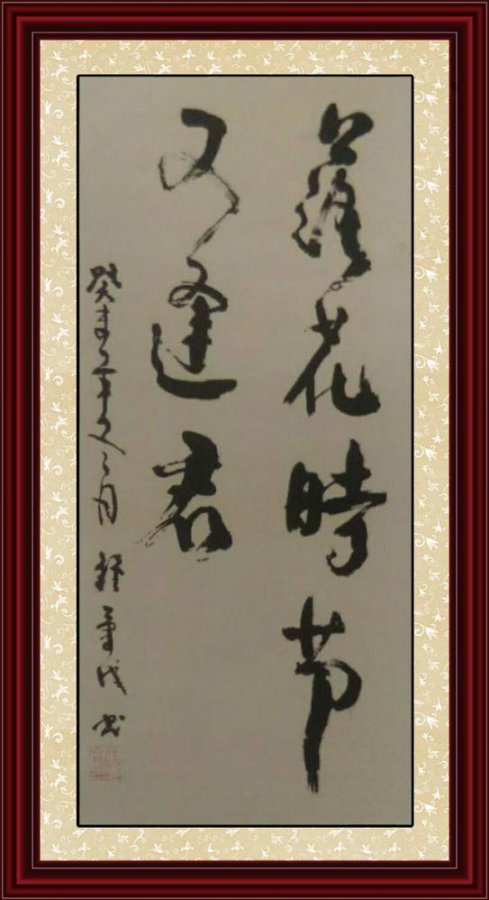 落花時节
又逢君
癸未年月书